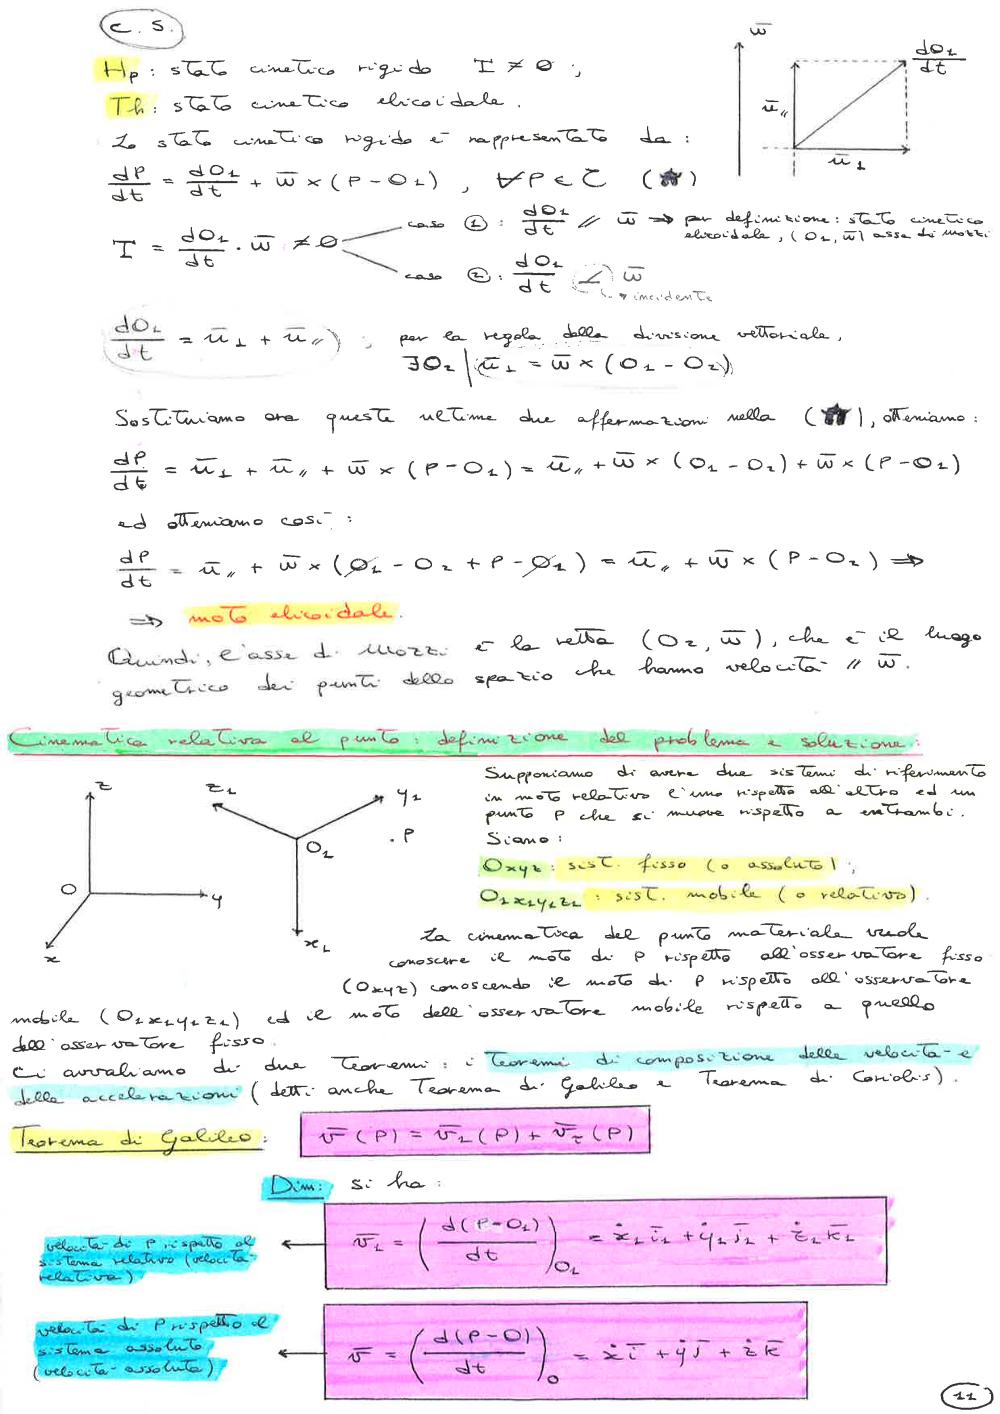 C.S.
Hp: stato cinetico rigido I ≠ 0;
Th: stato cinetico elicoidale.
Lo stato cinetico rigido è rappresentato da:
dP/dt = dO₁/dt + w̅ × (P - O₁), ∀P ∈ C (★)
w̅
dO₁/dt
u̅∥
u̅⊥
I = dO₁/dt · w̅ ≠ 0
caso ①: dO₁/dt // w̅ ⇒ per definizione: stato cinetico
elicoidale, (O₁, w̅) asse di Mozzi
caso ②: dO₁/dt ∠ w̅
→ incidente
dO₁/dt = u̅⊥ + u̅∥; per la regola della divisione vettoriale,
∃O₂ | u̅⊥ = w̅ × (O₁ - O₂)
Sostituiamo ora queste ultime due affermazioni nella (★), otteniamo:
dP/dt = u̅⊥ + u̅∥ + w̅ × (P - O₁) = u̅∥ + w̅ × (O₁ - O₂) + w̅ × (P - O₁)
ed otteniamo così:
dP/dt = u̅∥ + w̅ × (O₁ - O₂ + P - O₁) = u̅∥ + w̅ × (P - O₂) ⇒
⇒ moto elicoidale.
Quindi, l'asse di Mozzi è la retta (O₂, w̅), che è il luogo
geometrico dei punti dello spazio che hanno velocità // w̅.
Cinematica relativa al punto: definizione del problema e soluzione:
z
O
y
x
z₁
y₁
O₁
x₁
. P
Supponiamo di avere due sistemi di riferimento
in moto relativo l'uno rispetto all'altro ed un
punto P che si muove rispetto a entrambi.
Siano:
Oxyz: sist. fisso (o assoluto);
O₁x₁y₁z₁: sist. mobile (o relativo).
La cinematica del punto materiale vuole
conoscere il moto di P rispetto all'osservatore fisso
(Oxyz) conoscendo il moto di P rispetto all'osservatore
mobile (O₁x₁y₁z₁) ed il moto dell'osservatore mobile rispetto a quello
dell'osservatore fisso.
Ci avvaliamo di due teoremi: i teoremi di composizione delle velocità e
delle accelerazioni (detti anche Teorema di Galileo e Teorema di Coriolis).
Teorema di Galileo: v̅(P) = v̅₁(P) + v̅τ(P)
Dim: si ha:
velocità di P rispetto al
sistema relativo (velocità
relativa)
v̅₁ = (d(P-O₁)/dt)O₁ = ẋ₁i̅₁ + ẏ₁j̅₁ + ż₁k̅₁
velocità di P rispetto al
sistema assoluto
(velocità assoluta)
v̅ = (d(P-O)/dt)O = ẋi̅ + ẏj̅ + żk̅
11